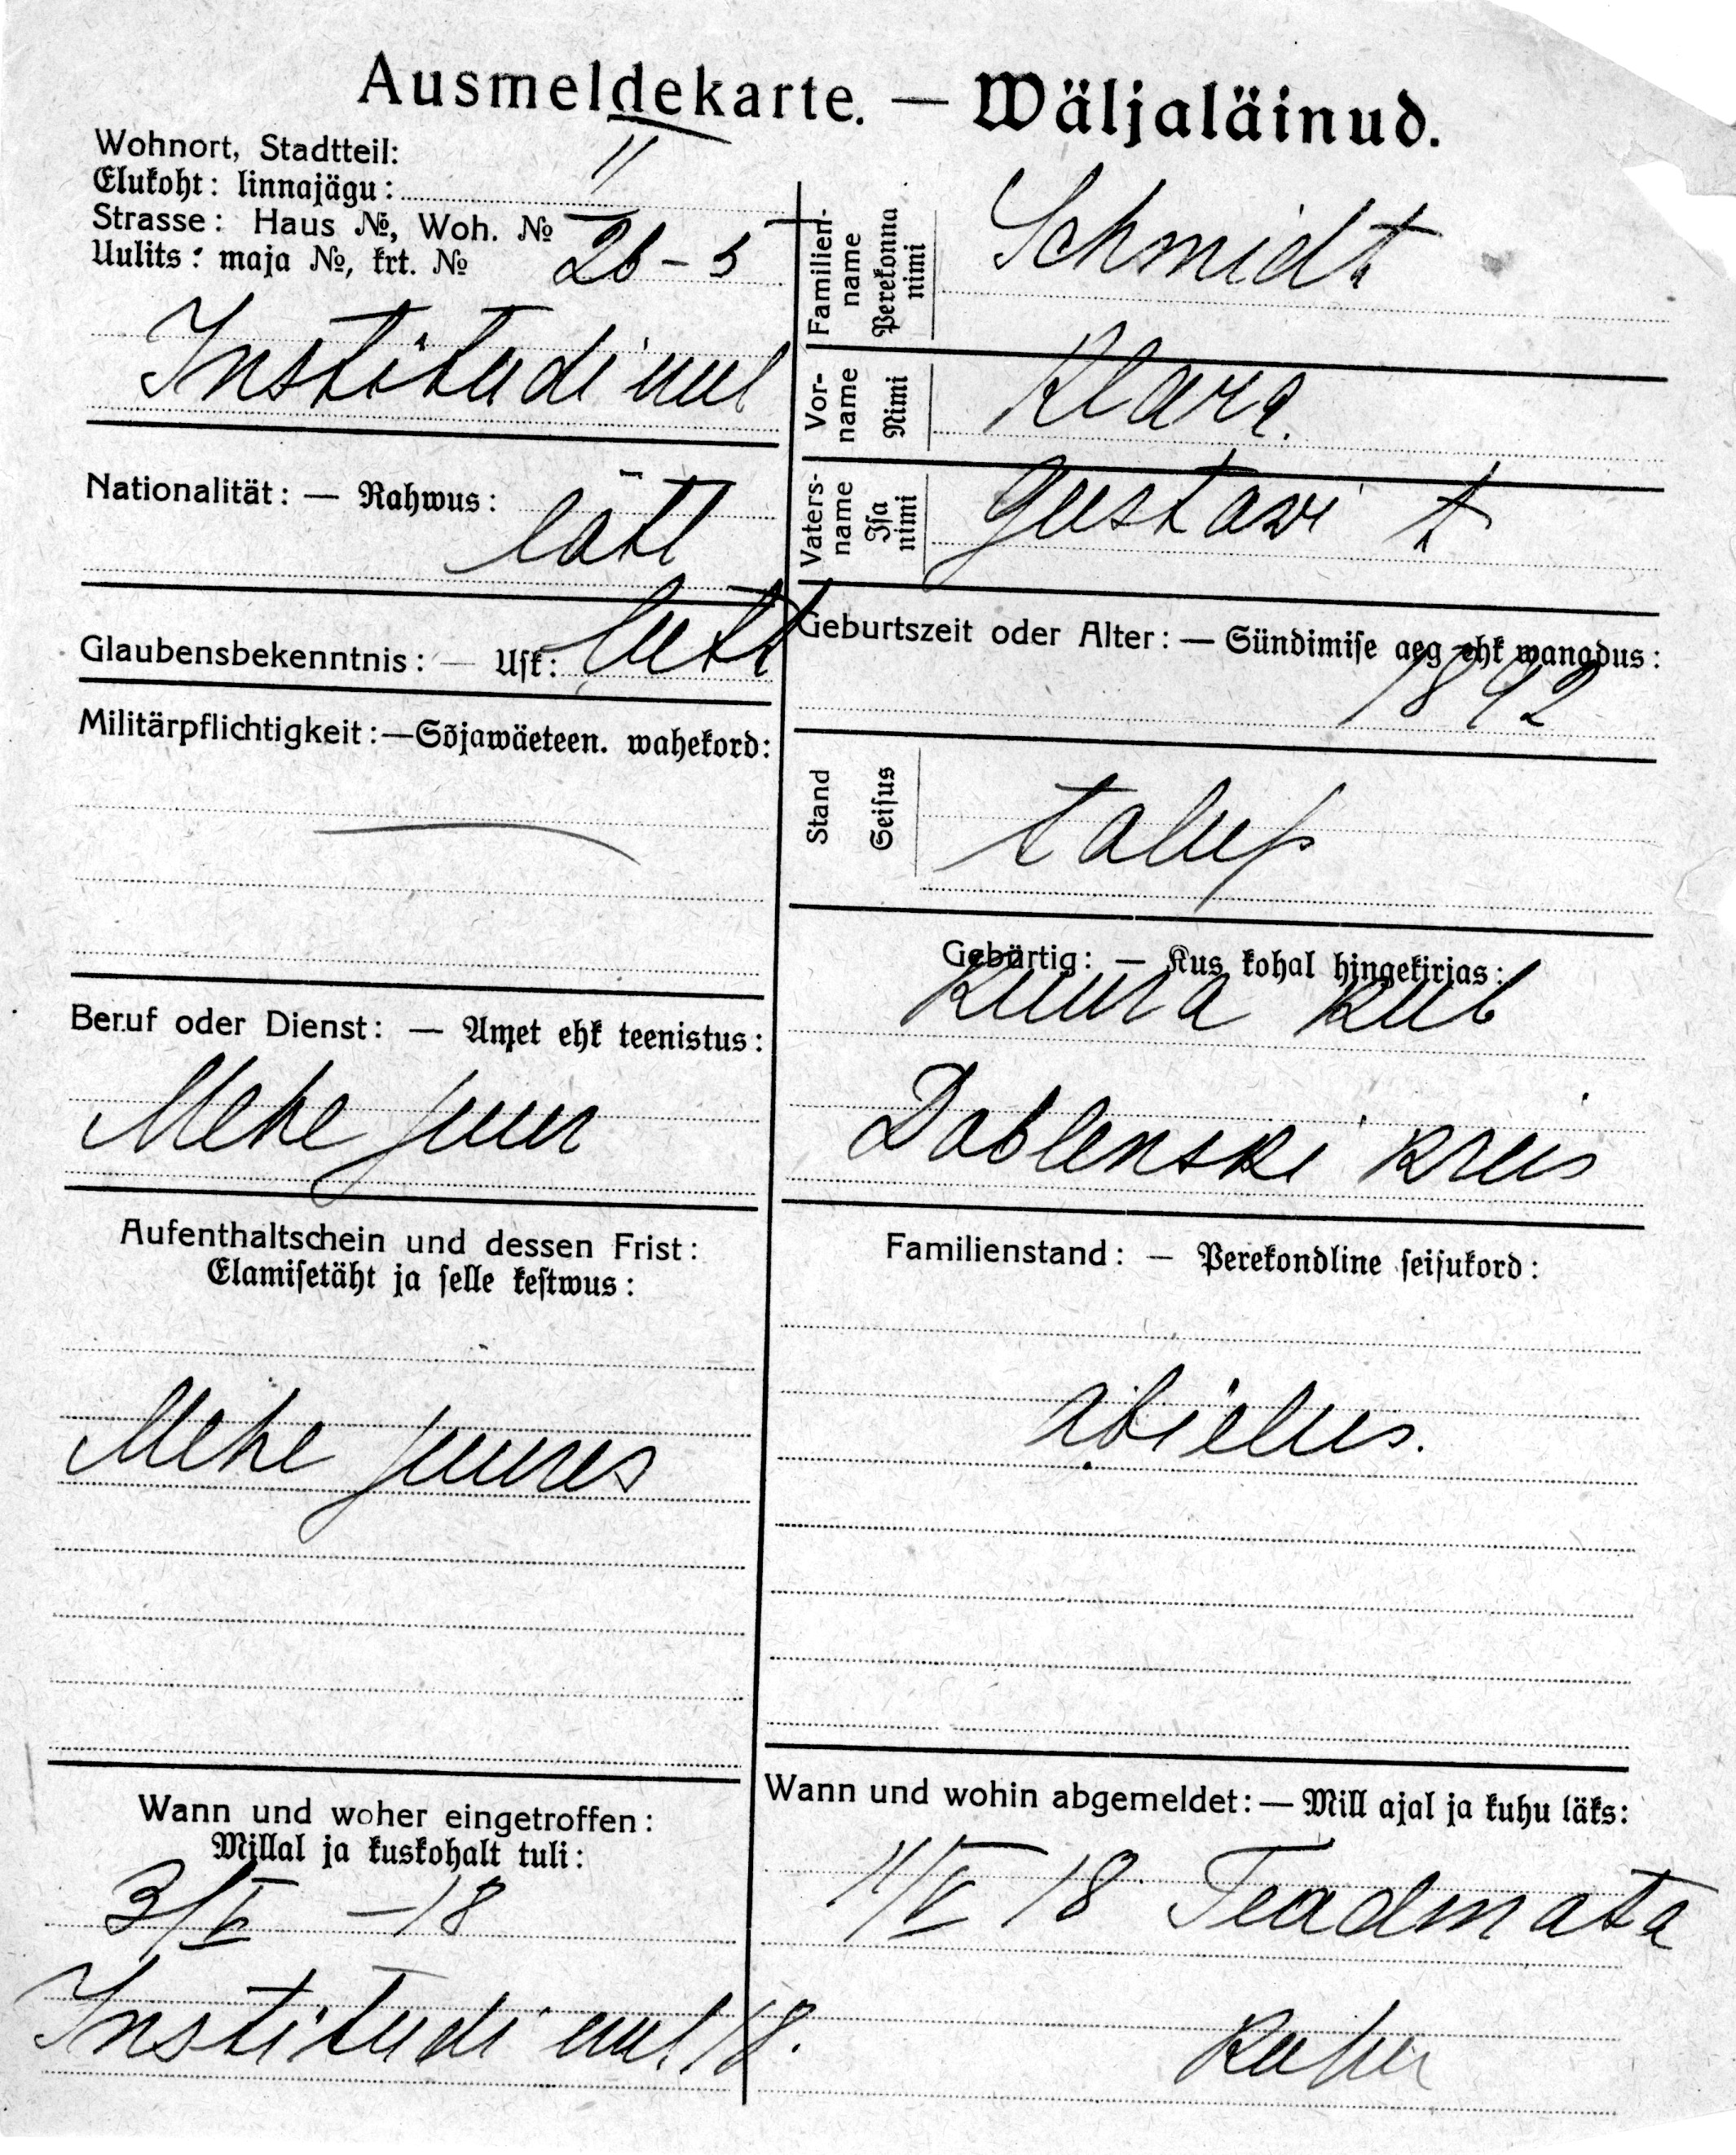 Ausmeldekarte. — Wäljaläinud.
Wohnort, Stadtteil:
Elukoht: linnajägu: II
Strasse: Haus №, Woh. №
Uulits: maja №, krt. № 26-5
Institudi uul
Nationalität: — Rahwus:
lätl
Glaubensbekenntnis: — Usk: lutt
Militärpflichtigkeit: — Sõjawäeteen. wahekord:
Beruf oder Dienst: — Amet ehk teenistus:
Mehe juur
Aufenthaltschein und dessen Frist:
Elamisetäht ja selle kestwus:
Mehe juures
Wann und woher eingetroffen:
Millal ja kuskohalt tuli:
3/V -18
Institudi uul 18.
Familien-name Perekonna nimi
Schmidt
Vor-name Nimi
Klara.
Vaters-name Isa nimi
Gustawi t
Geburtszeit oder Alter: — Sündimise aeg ehk wanadus:
1892
Stand Seisus
talup
Gebürtig: — Kus kohal hingekirjas:
Kuura kub
Doblenski kreis
Familienstand: — Perekondline seisukord:
abielus.
Wann und wohin abgemeldet: — Mill ajal ja kuhu läks:
11/V 18 Teadmata
kuhu